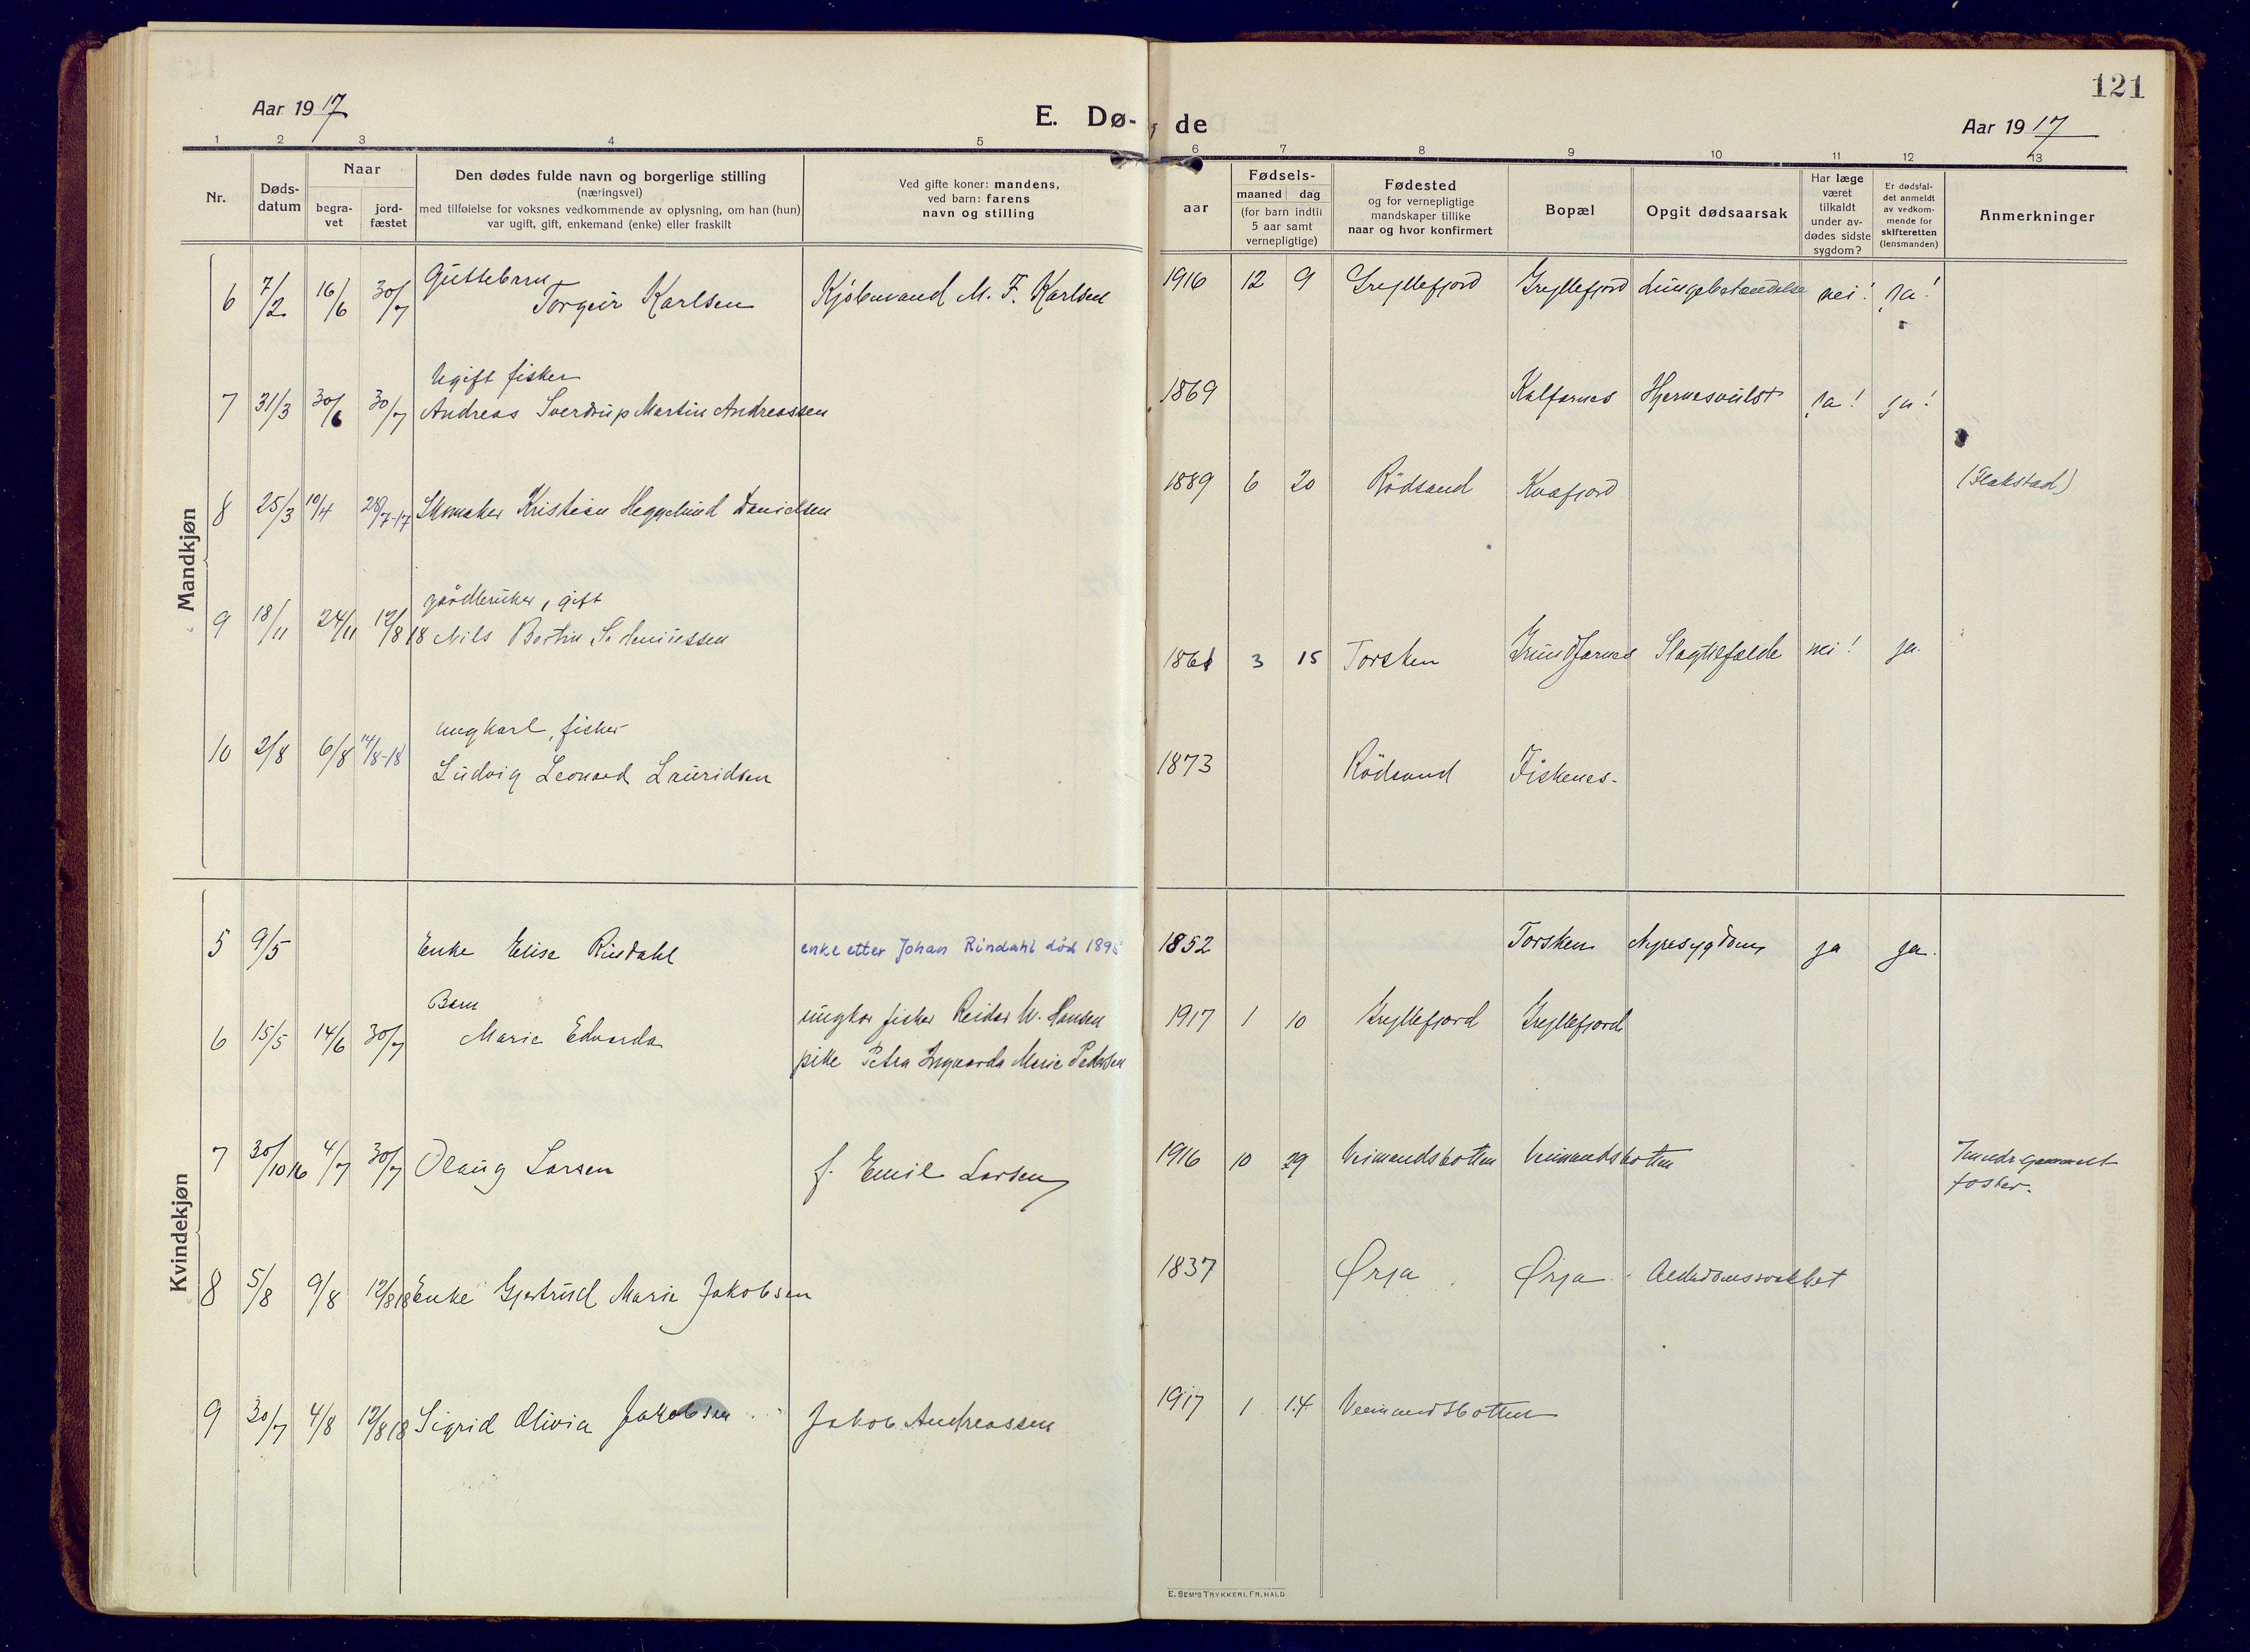 121
Aar 1917
E. Dø- de
Aar 1917
1 2 3 4 5 6 7 8 9 10 11 12 13
Nr.
Døds-
datum
Naar
begra-
vet
jord-
fæstet
Den dødes fulde navn og borgerlige stilling
(næringsvei)
med tilføielse for voksnes vedkommende av oplysning, om han (hun)
var ugift, gift, enkemand (enke) eller fraskilt
Ved gifte koner: mandens,
ved barn: farens
navn og stilling
Fødsels-
aar
maaned dag
(for barn indtil
5 aar samt
vernepligtige)
Fødested
og for vernepligtige
mandskaper tillike
naar og hvor konfirmert
Bopæl
Opgit dødsaarsak
Har læge
været
tilkaldt
under av-
dødes sidste
sygdom?
Er dødsfal-
det anmeldt
av vedkom-
mende for
skifteretten
(lensmanden)
Anmerkninger
Mandkjøn
Guttebarn
6 7/2 16/6 30/7 Torgeir Karlsen Kjøbmand M. F. Karlsen 1916 12 9 Gryllefjord Gryllefjord Lungebetændelse nei! ja!
Ugift fisker
7 31/3 30/6 30/7 Andreas Sverdrup Martin Andreassen 1869 Kalfarnes Hjernesvulst ja! ja!
8 25/3 10/4 28/7-17 Skomaker Kristian Heggelund Danielsen 1889 6 20 Rödsand Kvæfjord (Flakstad)
gårdbruker, gift
9 18/11 24/11 12/8 18 Nils Bertin 1861 3 15 Torsken Grundfarnes Slagtilfælde nei! ja.
ungkarl, fisker
10 2/8 6/8 14/8-18 Ludvig Leonard Lauridsen 1873 Rödsand Fiskenes-
Kvindekjøn
5 9/5 Enke Elise Rindahl enke etter Johan Rindahl død 1895 1852 Torsken Nyresygdom ja ja.
Barn
6 15/5 14/6 30/7 Marie Edvarda ungkar fisker Reidar W. Hansen 1917 1 10 Gryllefjord Gryllefjord
pike Petra Ingvarda Marie Pedersen
7 30/10 16 4/7 30/7 Olaug Larsen f. Emil Larsen 1916 10 29 Veimandsbotten Veimandsbotten 7 mndr gammelt
foster.
8 5/8 9/8 12/8 18 Enke Gjertrud Marie Jakobsen 1837 Ørja Ørja Alderdomssvakhet
9 30/7 4/8 12/8 18 Sigrid Olivia Jakobsen Jakob Andreassen 1917 1 14 Veimandsbotten
E. SEM'S TRYKKERI, FR. HALD